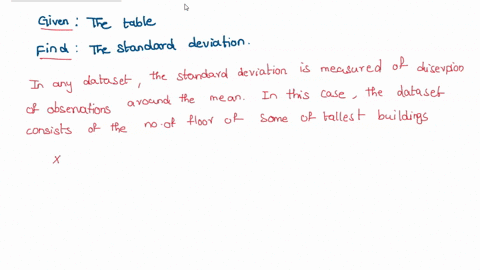 Given : The table
Find : The standard deviation.
In any dataset, the standard deviation is measured of diserpion
of obsenations around the mean. In this case, the dataset
consists of the no.of floor of some of tallest buildings
x